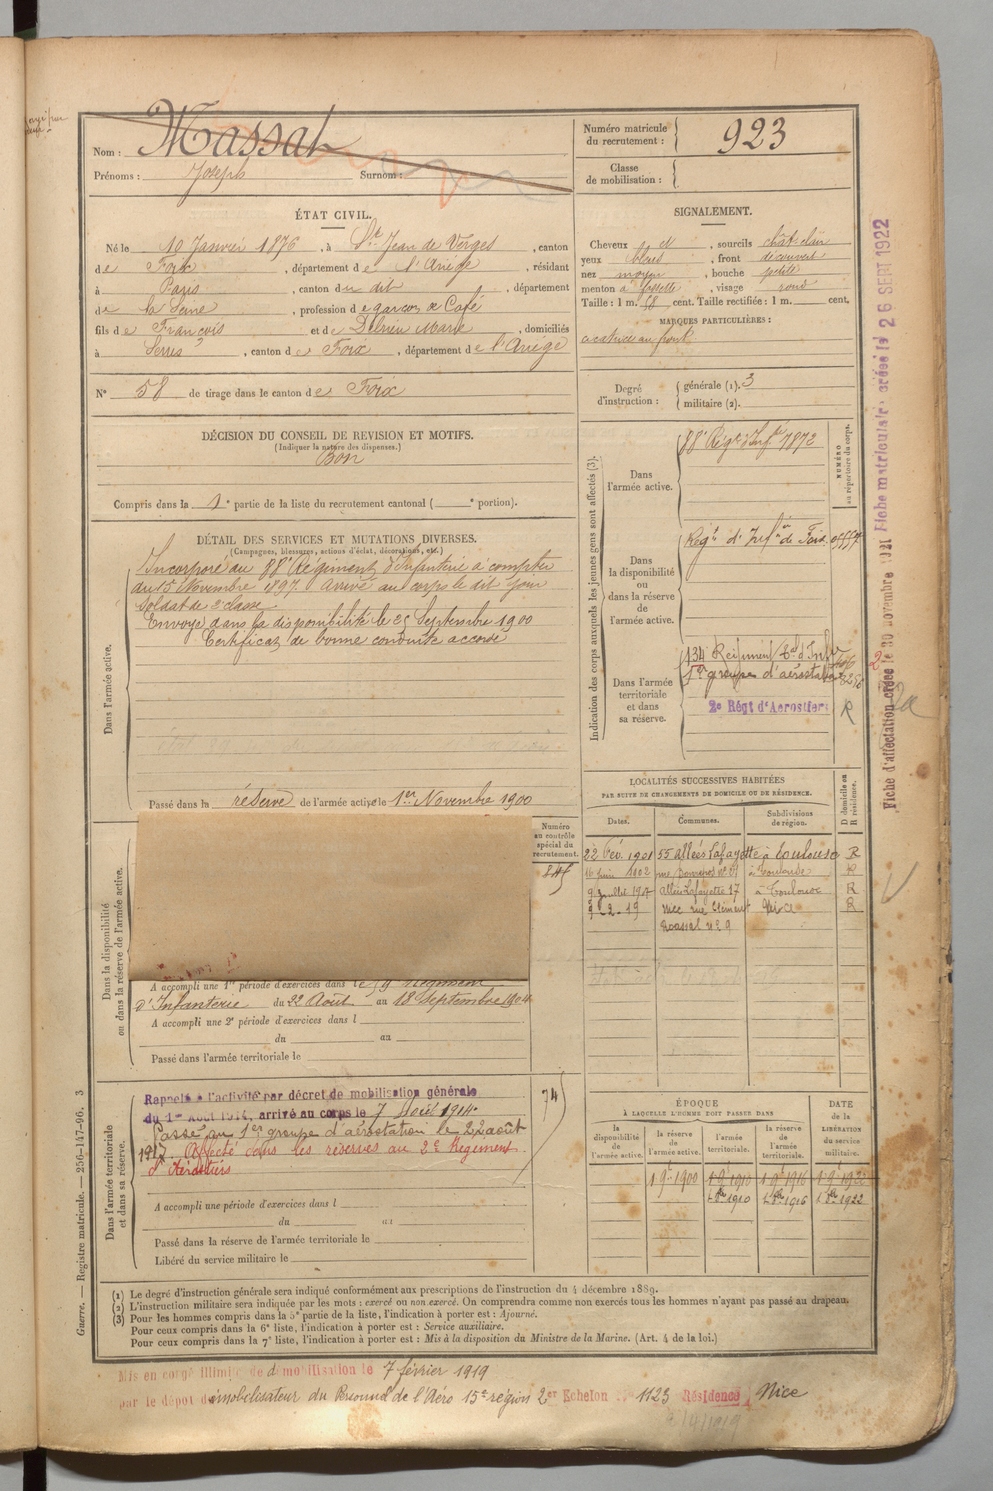 Nom : Massat
Prénoms : Joseph Surnom :
Numéro matricule du recrutement : 923
Classe de mobilisation :
ÉTAT CIVIL.
Né le 10 Janvier 1876, à St Jean de Verges, canton
de Foix, département de l'Ariège, résidant
à Paris, canton du dit, département
de la Seine, profession de garçon de Café
fils de François et de Delrieu Marie, domiciliés
à Serres, canton de Foix, département de l'Ariège
N° 58 de tirage dans le canton de Foix
SIGNALEMENT.
Cheveux et, sourcils chât clair
yeux bleus, front découvert
nez moyen, bouche petite
menton à fossette, visage rond
Taille : 1 m. 68 cent. Taille rectifiée : 1 m. cent.
MARQUES PARTICULIÈRES :
cicatrice au front
Degré d'instruction : générale (1). 3
militaire (2).
DÉCISION DU CONSEIL DE REVISION ET MOTIFS.
(Indiquer la nature des dispenses.)
Bon
Compris dans la 1e partie de la liste du recrutement cantonal ( e portion).
DÉTAIL DES SERVICES ET MUTATIONS DIVERSES.
(Campagnes, blessures, actions d'éclat, décorations, etc.)
Dans l'armée active.
Incorporé au 88e Régiment d'Infanterie à compter
du 15 Novembre 1897. Arrivé au corps le dit jour
Soldat de 2e classe
Envoyé dans la disponibilité le 2 Septembre 1900
Certificat de bonne conduite accordé
Passé dans la réserve de l'armée active le 1er Novembre 1900
Indication des corps auxquels les jeunes gens sont affectés (3).
NUMÉRO au répertoire du corps.
Dans l'armée active.
88e Régt d'Inf 7872
Dans la disponibilité ou dans la réserve de l'armée active.
Régt d'Infie de Foix
Dans l'armée territoriale et dans sa réserve.
134 Régiment d'Infie
1er groupe d'aérostation
2e Régt d'Aerostiers R
LOCALITÉS SUCCESSIVES HABITÉES
PAR SUITE DE CHANGEMENTS DE DOMICILE OU DE RÉSIDENCE.
Dates. Communes. Subdivisions de région. D domicile ou R résidence.
22 Fév. 1901 55 allées Lafayette à Toulouse R
16 Juin 1902 rue n° à Toulouse R
9 Juillet 1907 allées Lafayette 17 à Toulouse R
7-2-19 Nice rue Clément Nice R
Roassal n° 9
Dans la disponibilité ou dans la réserve de l'armée active.
Numéro au contrôle spécial du recrutement.
845
A accompli une 1re période d'exercices dans le 59 Régiment
d'Infanterie du 22 Août au 18 Septembre 1904
A accompli une 2e période d'exercices dans l
du au
Passé dans l'armée territoriale le
Dans l'armée territoriale et dans sa réserve.
Rappelé à l'activité par décret de mobilisation générale
du 1er Août 1914, arrivé au corps le 7 Août 1914.
Passé au 1er groupe d'aérostation le 22 août
1917. Affecté dans les réserves au 2e Régiment
d'Aérostiers
74
A accompli une période d'exercices dans l
du au
Passé dans la réserve de l'armée territoriale le
Libéré du service militaire le
ÉPOQUE
À LAQUELLE L'HOMME DOIT PASSER DANS
DATE de la LIBÉRATION du service militaire.
la disponibilité de l'armée active. la réserve de l'armée active. l'armée territoriale. la réserve de l'armée territoriale.
1 9e 1900 1 9e 1910 1 9e 1916 1 9e 1922
1910 1916 1922
(1) Le degré d'instruction générale sera indiqué conformément aux prescriptions de l'instruction du 4 décembre 1889.
(2) L'instruction militaire sera indiquée par les mots : exercé ou non exercé. On comprendra comme non exercés tous les hommes n'ayant pas passé au drapeau.
(3) Pour les hommes compris dans la 5e partie de la liste, l'indication à porter est : Ajourné.
Pour ceux compris dans la 6e liste, l'indication à porter est : Service auxiliaire.
Pour ceux compris dans la 7e liste, l'indication à porter est : Mis à la disposition du Ministre de la Marine. (Art. 4 de la loi.)
Mis en congé illimité de démobilisation le 7 février 1919
par le dépot démobilisateur du Personnel de l'Aéro 15e région 2er Echelon N° 1123 Résidence Nice
Guerre. — Registre matricule. — 256-147-96. 3
Fiche d'affectation créée le 30 novembre 1921 Fiche matriculaire créée le 26 SEPT 1922